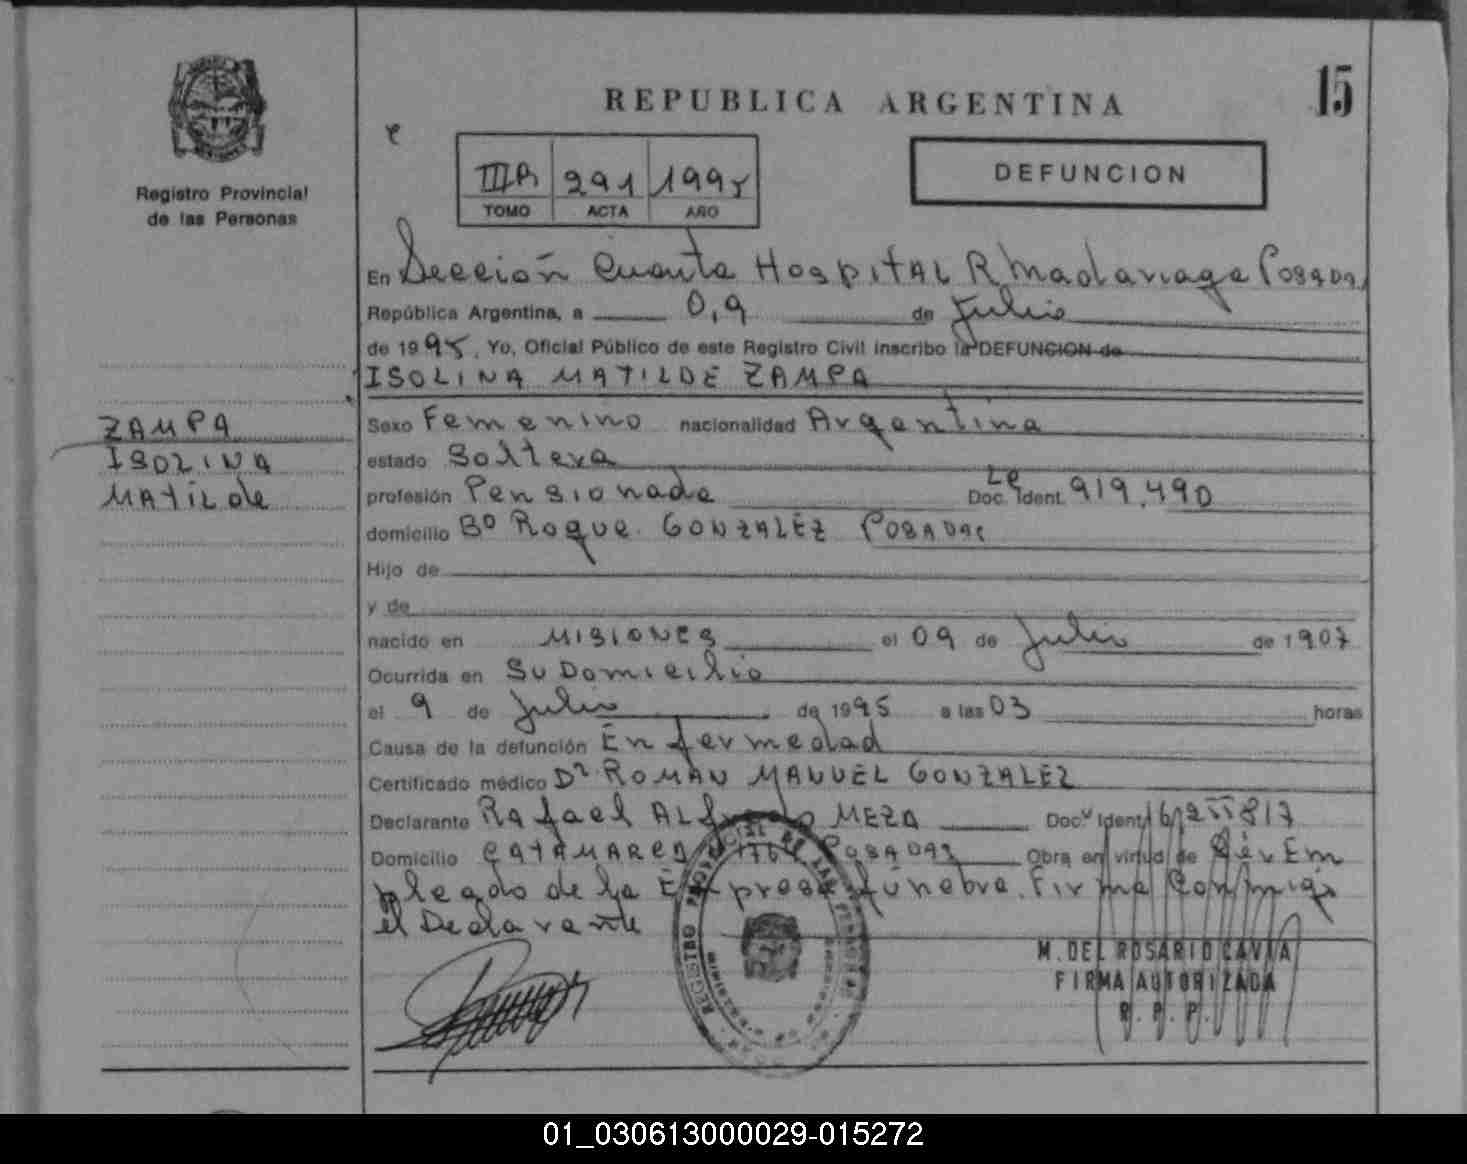 15
REPUBLICA ARGENTINA
DEFUNCION
Registro Provincial
de las Personas
291 1995
TOMO ACTA AÑO
En Sección Cuarta Hospital R Madariaga Posadas
República Argentina, a 0,9 de Julio
de 1995. Yo, Oficial Público de este Registro Civil inscribo la DEFUNCION de
ISOLINA MATILDE ZAMPA
ZAMPA
ISOLINA
MATILde
Sexo Femenino nacionalidad Argentina
estado Soltera
profesión Pensionada Doc. Ident. Le 919.490
domicilio Bº Roque GONZALEZ POSADAS
Hijo de
y de
nacido en MISIONES el 09 de Julio de 1907
Ocurrida en Su Domicilio
el 9 de Julio de 1995 a las 03 horas
Causa de la defunción Enfermedad
Certificado médico Dr. ROMAN MANUEL GONZALEZ
Declarante Rafael Alfredo MEZA Doc. Ident.
Domicilio CATAMARCA POSADAS Obra en virtud de Sér Em
plegado de la Empresa fúnebre. Firma Conmigo
el Declarante
REGISTRO PROVINCIAL DE LAS PERSONAS
M. DEL ROSARIO CAVIA
FIRMA AUTORIZADA
R. P. P.
01_030613000029-015272